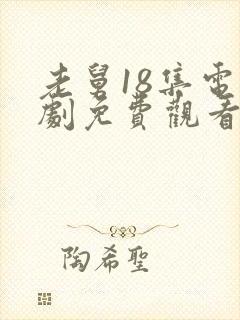 老舅18集電
劇免費觀看
陶希聖